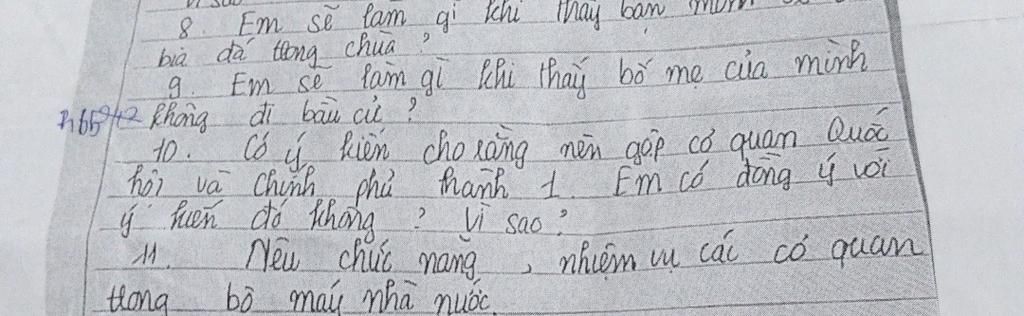 8. Em sẽ làm gì khi thấy bạn
bia đá trong chùa?
9. Em sẽ làm gì khi thấy bố mẹ của mình
không đi bầu cử?
10. Có ý kiến cho rằng nên gộp cơ quan Quốc
hội và Chính phủ thành 1. Em có đồng ý với
ý kiến đó không? Vì sao?
11. Nêu chức năng, nhiệm vụ các cơ quan
trong bộ máy nhà nước.